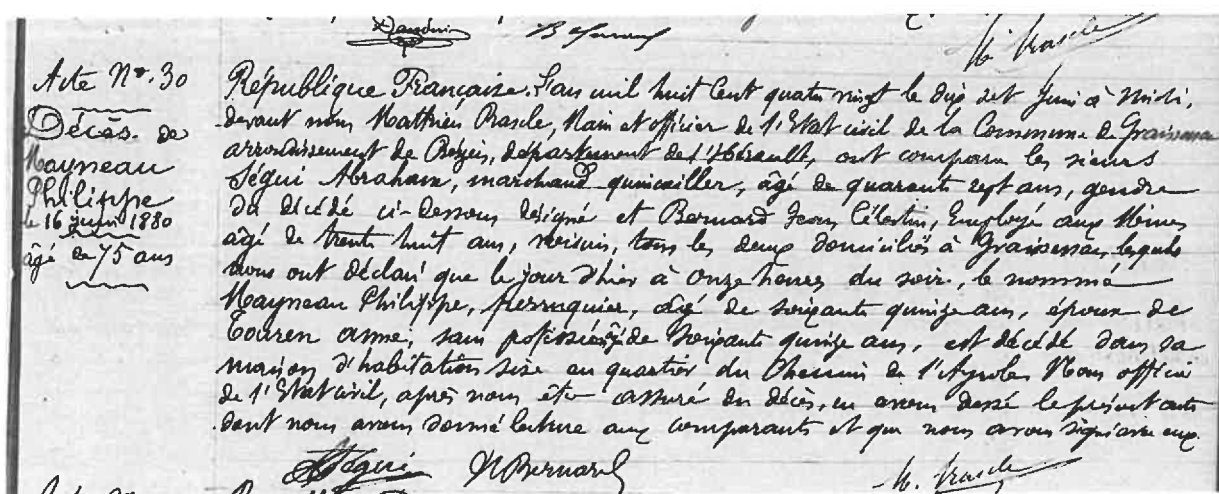 Acte Nº. 30
Décès de
Mayneau
Philippe
le 16 juin 1880
âgé de 75 ans
République Française. L'an mil huit cent quatre vingt le dix sept Juin à midi,
devant nous Matthieu Rascle, Maire et officier de l'Etat civil de la Commune de Graissessac
arrondissement de Béziers, département de l'Hérault, ont comparu les sieurs
Ségui Abraham, marchand quincailler, âgé de quarante sept ans, gendre
du décédé ci-dessous désigné et Bernard Jean Célestin, Employé aux Mines
âgé de trente huit ans, voisin, tous les deux domiciliés à Graissessac, lesquels
nous ont déclaré que le jour d'hier à onze heures du soir, le nommé
Mayneau Philippe, perruquier, âgé de soixante quinze ans, époux de
Couren anne, sans profession, âgée de soixante quinze ans, est décédé dans sa
maison d'habitation sise au quartier du Chemin de l'Ayrolle. Nous officier
de l'Etat civil, après nous être assuré du décès, en avons dressé le présent acte
dont nous avons donné lecture aux comparants et que nous avons signé avec eux.
Ségui Bernard M. Rascle